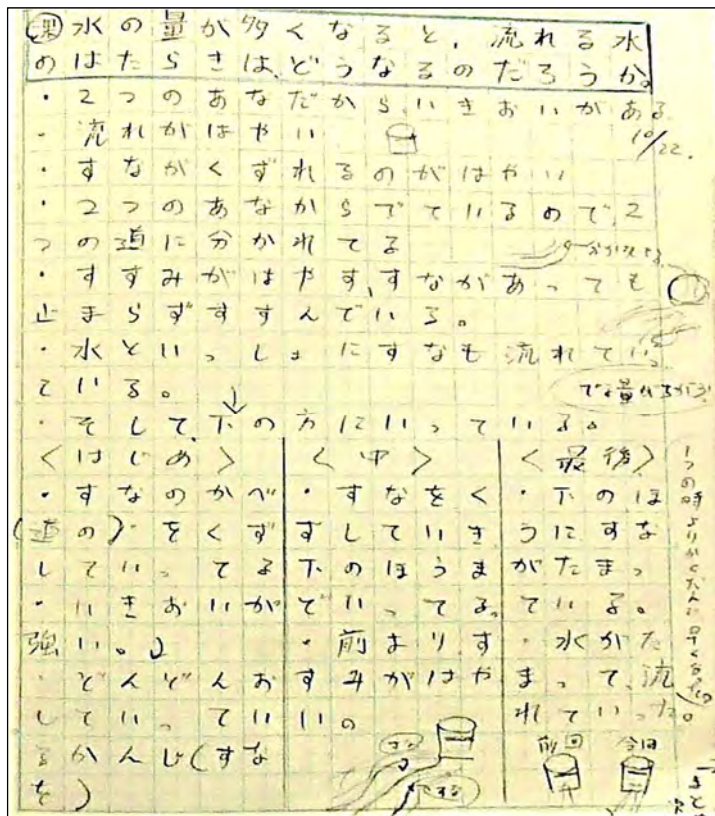 課 水の量が多くなると、流れる水
のはたらきは、どうなるのだろうか。
・2つのあなだからいきおいがある
10/22.
・流れがはやい
・すながくずれるのがはやい
・2つのあなからでているので、2
つの道に分かれてる
・すすみがはやす、すながあっても
止まらずすすんでいる。
・水といっしょにすなも流れていっ
ている。
・そして、下の方にいっている。
<はじめ>
・すなのかべ
(道の)をくず
していってる
・いきおいが
強い。
・どんどんお
していってい
るかんじ(すな
を)
<中>
・すなをく
ずしていき
下のほうま
でいってる。
・前よりす
すみがはや
いの
<最後>
・下のほ
うにすな
がたまっ
ている。
・水がた
まって、流
れていった
前回 今回